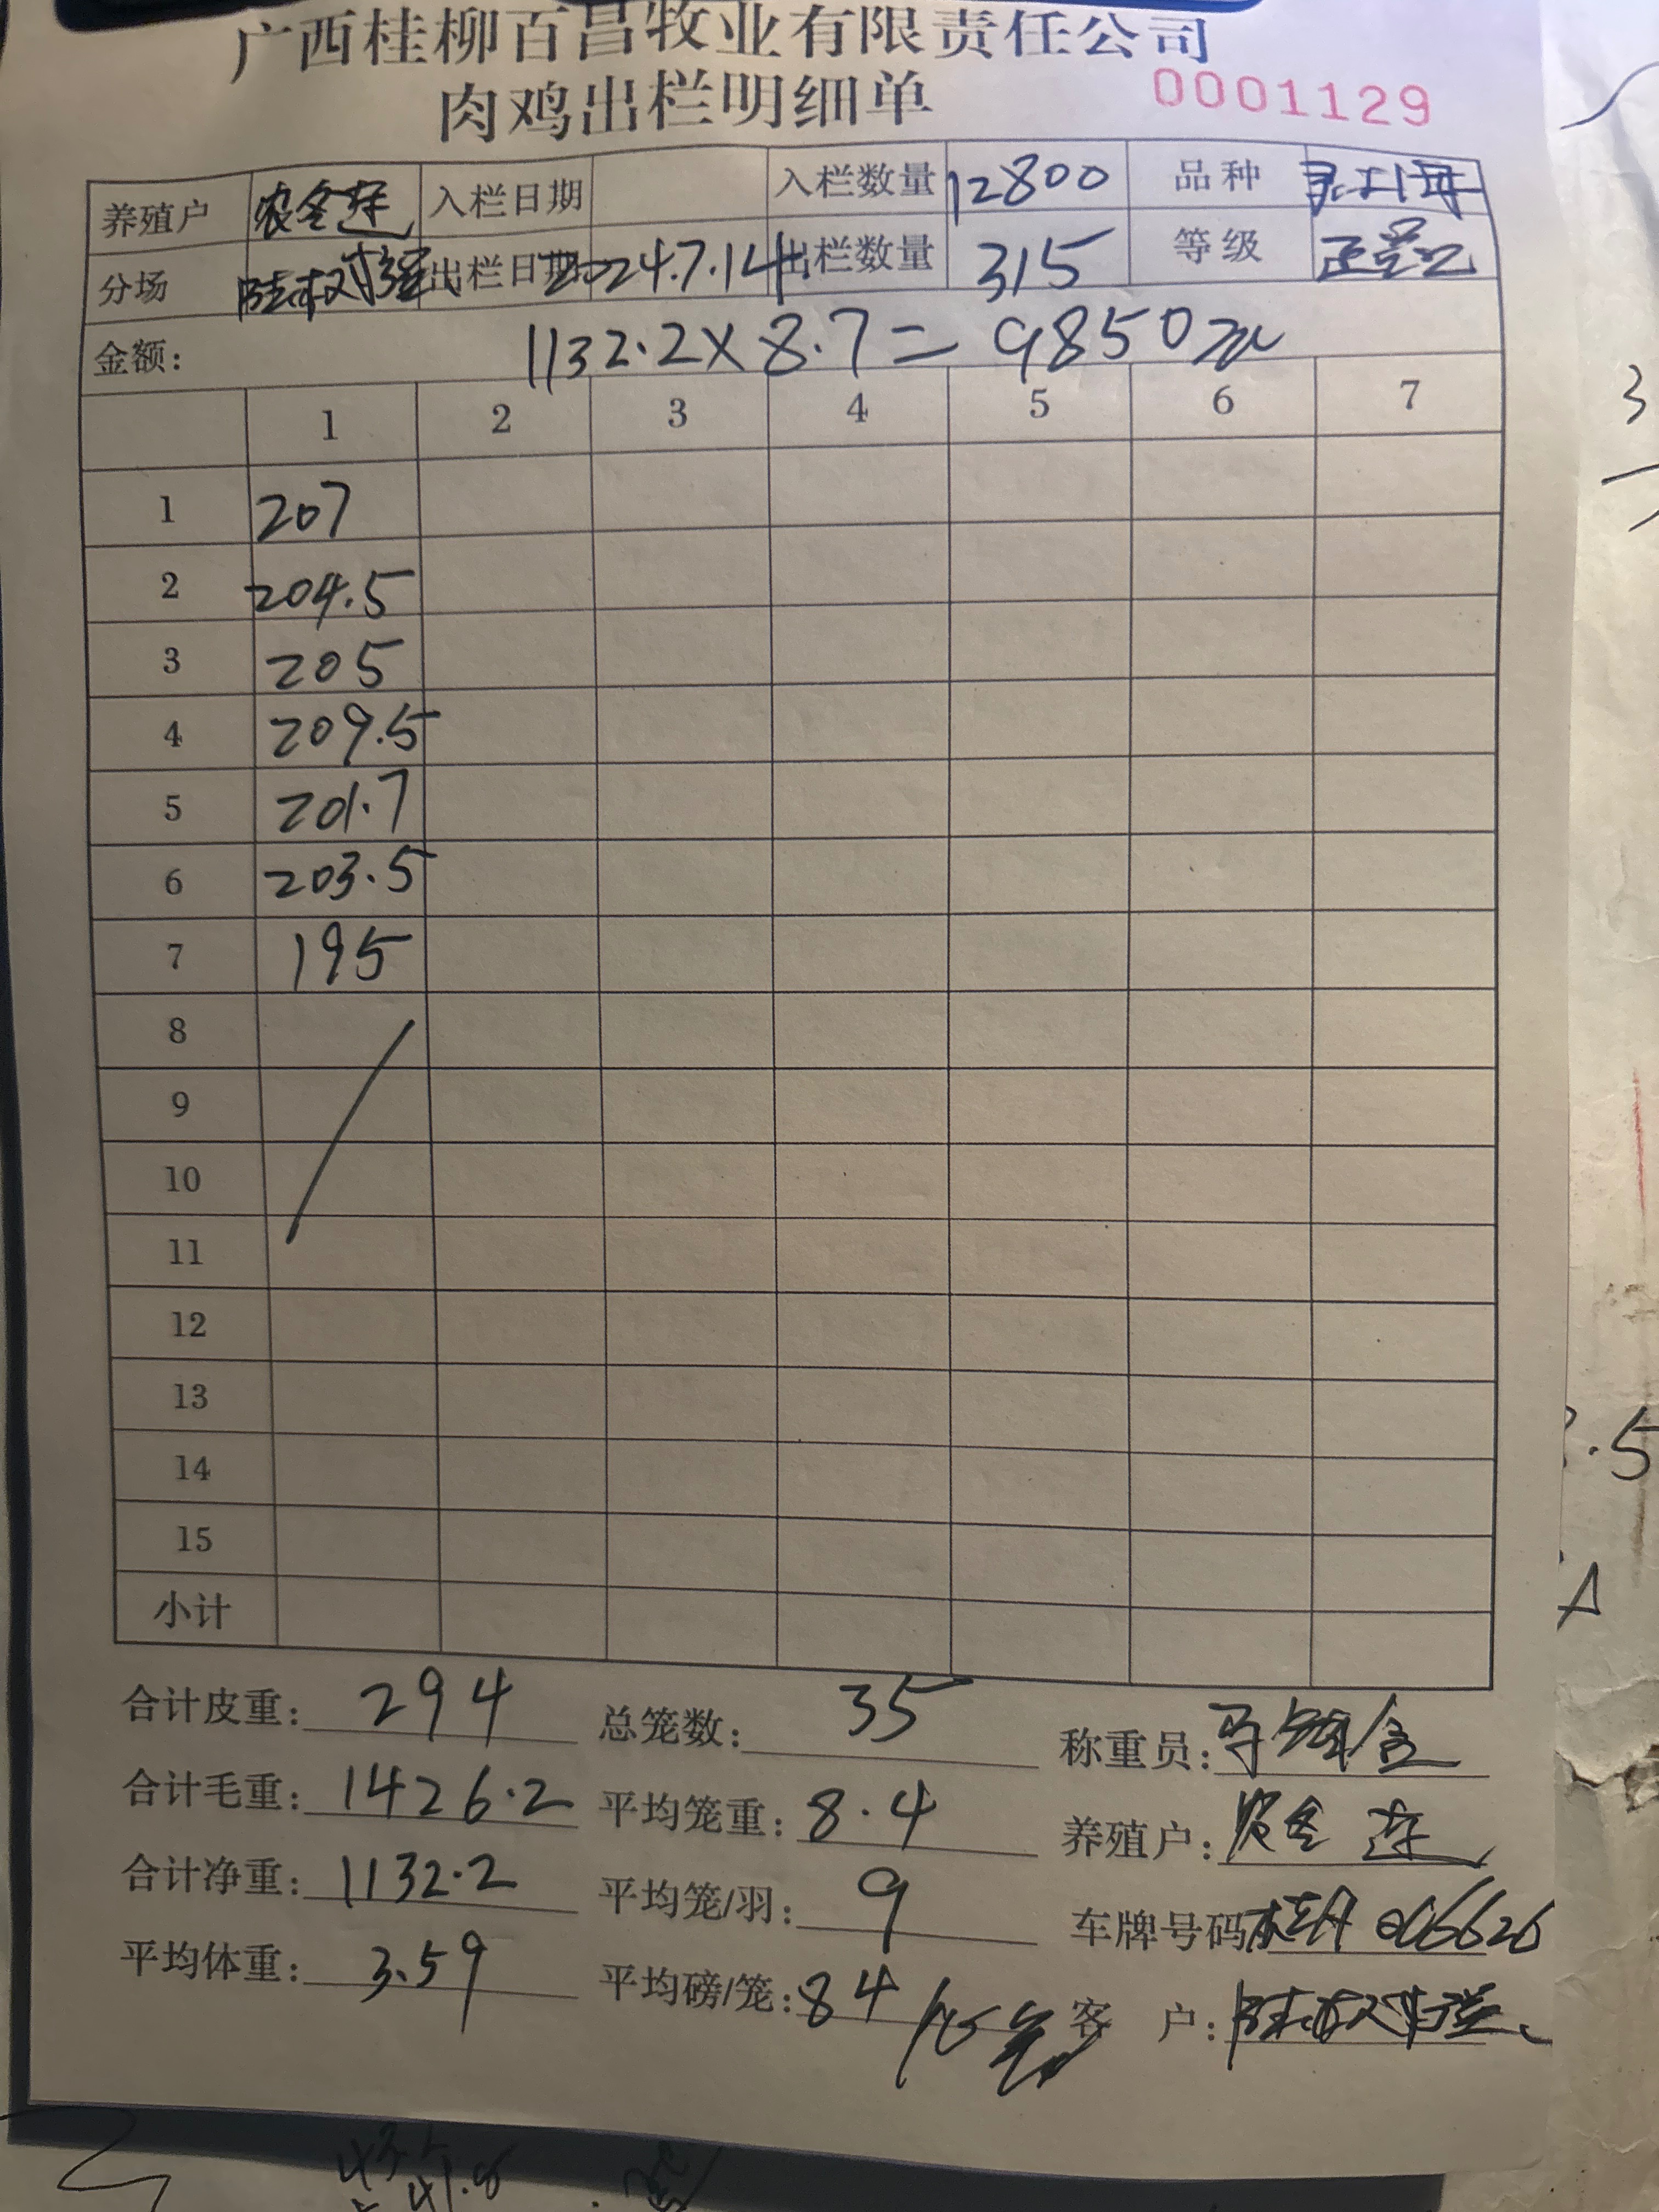 广西桂柳百昌牧业有限责任公司
肉鸡出栏明细单 0001129
养殖户 农冬连 入栏日期 入栏数量 12800 品种
分场 出栏日期 2024.7.14 出栏数量 315 等级
金额: 1132.2×8.7=9850元
1 2 3 4 5 6 7
1 207
2 204.5
3 205
4 209.5
5 201.7
6 203.5
7 195
8
9
10
11
12
13
14
15
小计
合计皮重: 294 总笼数: 35 称重员:
合计毛重: 1426.2 平均笼重: 8.4 养殖户: 农冬连
合计净重: 1132.2 平均笼/羽: 9 车牌号码
平均体重: 3.59 平均磅/笼: 84 /5笼 客户:
3
.5